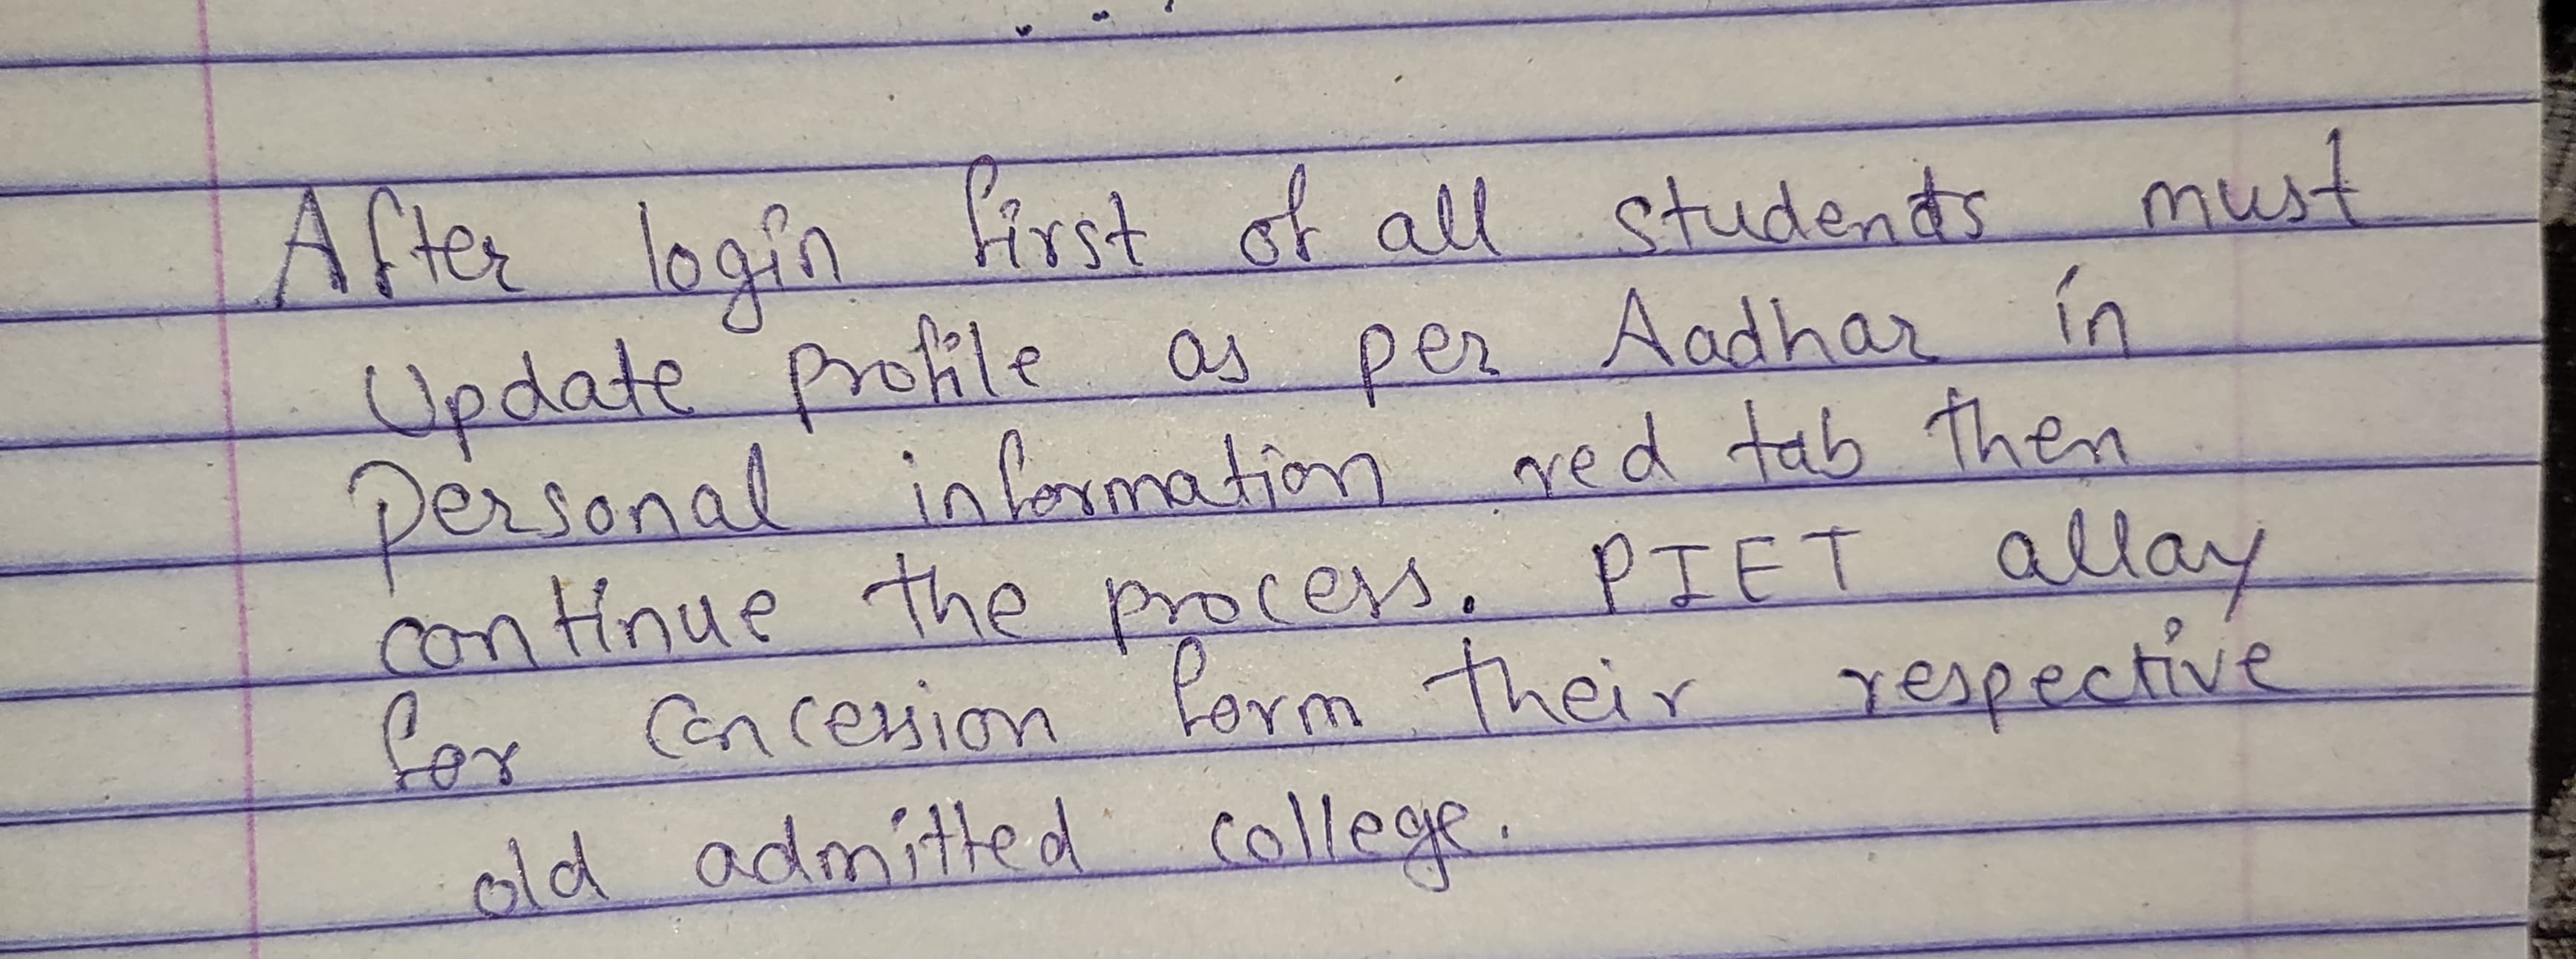 After login first of all students must
Update profile as per Aadhar in
Personal information red tab then
continue the process. PIET allay
for concession form their respective
old admitted college.